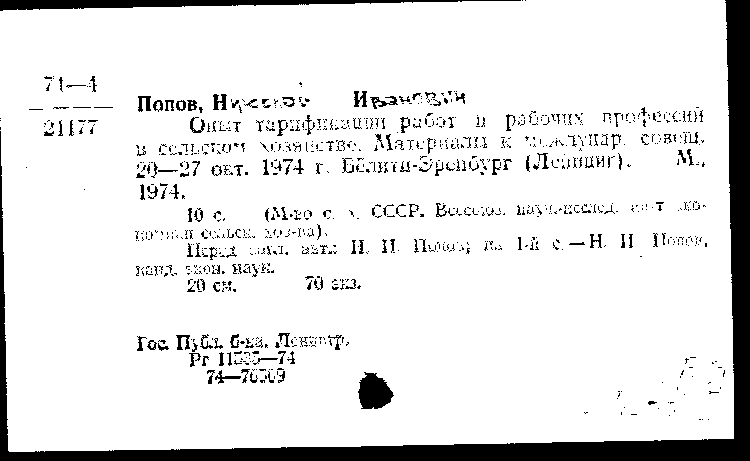 74—4
21177
Попов, Николай Иванович
Опыт тарификации работ и рабочих профессий
в сельском хозяйстве. Материалы к междунар. совещ.
20—27 окт. 1974 г. Бёлитц-Эренбург (Лейпциг). М.,
1974.
10 с. (М-во с. х. СССР. Всесоюз. науч.-исслед. ин-т эко-
номики сельск. хоз-ва).
Перед загл. авт.: Н. И. Попов; на 1-й с. — Н. И. Попов,
канд. экон. наук.
20 см. 70 экз.
Гос. Публ. б-ка. Ленингр.
Рг 11535—74
74—76509